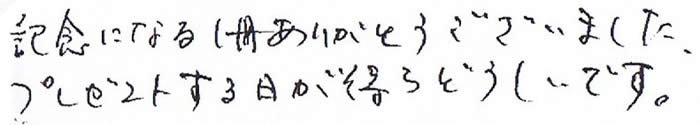 記念になる1冊ありがとうございました、
プレゼントする日が待ちどうしいです。